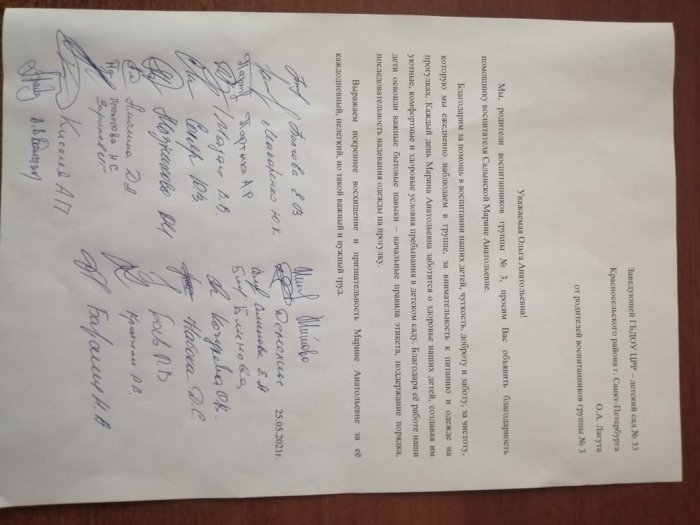 Заведующей ГБДОУ ЦРР – детский сад № 33
Красносельского района г. Санкт-Петербурга
О.А. Лагута
от родителей воспитанников группы № 3
Уважаемая Ольга Анатольевна!
Мы, родители воспитанников группы № 3, просим Вас объявить благодарность
помощнику воспитателя Садынской Марине Анатольевне.
Благодарим за помощь в воспитании наших детей, чуткость, доброту и заботу, за чистоту,
которую мы ежедневно наблюдаем в группе, за внимательность к питанию и одежде на
прогулках. Каждый день Марина Анатольевна заботится о здоровье наших детей, создавая им
уютные, комфортные и здоровые условия пребывания в детском саду. Благодаря её работе наши
дети освоили важные бытовые навыки – начальные правила этикета, поддержание порядка,
последовательность надевания одежды на прогулку.
Выражаем искреннее восхищение и признательность Марине Анатольевне за её
каждодневный, нелегкий, но такой важный и нужный труд.
25.05.2021г.
Макаренко Ю.К.
Блинова
Прохорова Н.С.
Киселев А.П.